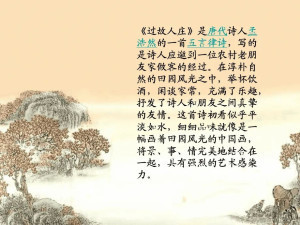 《过故人庄》是唐代诗人孟
浩然的一首五言律诗，写的
是诗人应邀到一位农村老朋
友家做客的经过。在淳朴自
然的田园风光之中，举杯饮
酒，闲谈家常，充满了乐趣，
抒发了诗人和朋友之间真挚
的友情。这首诗初看似乎平
淡如水，细细品味就像是一
幅画着田园风光的中国画，
将景、事、情完美地结合在
一起，具有强烈的艺术感染
力。